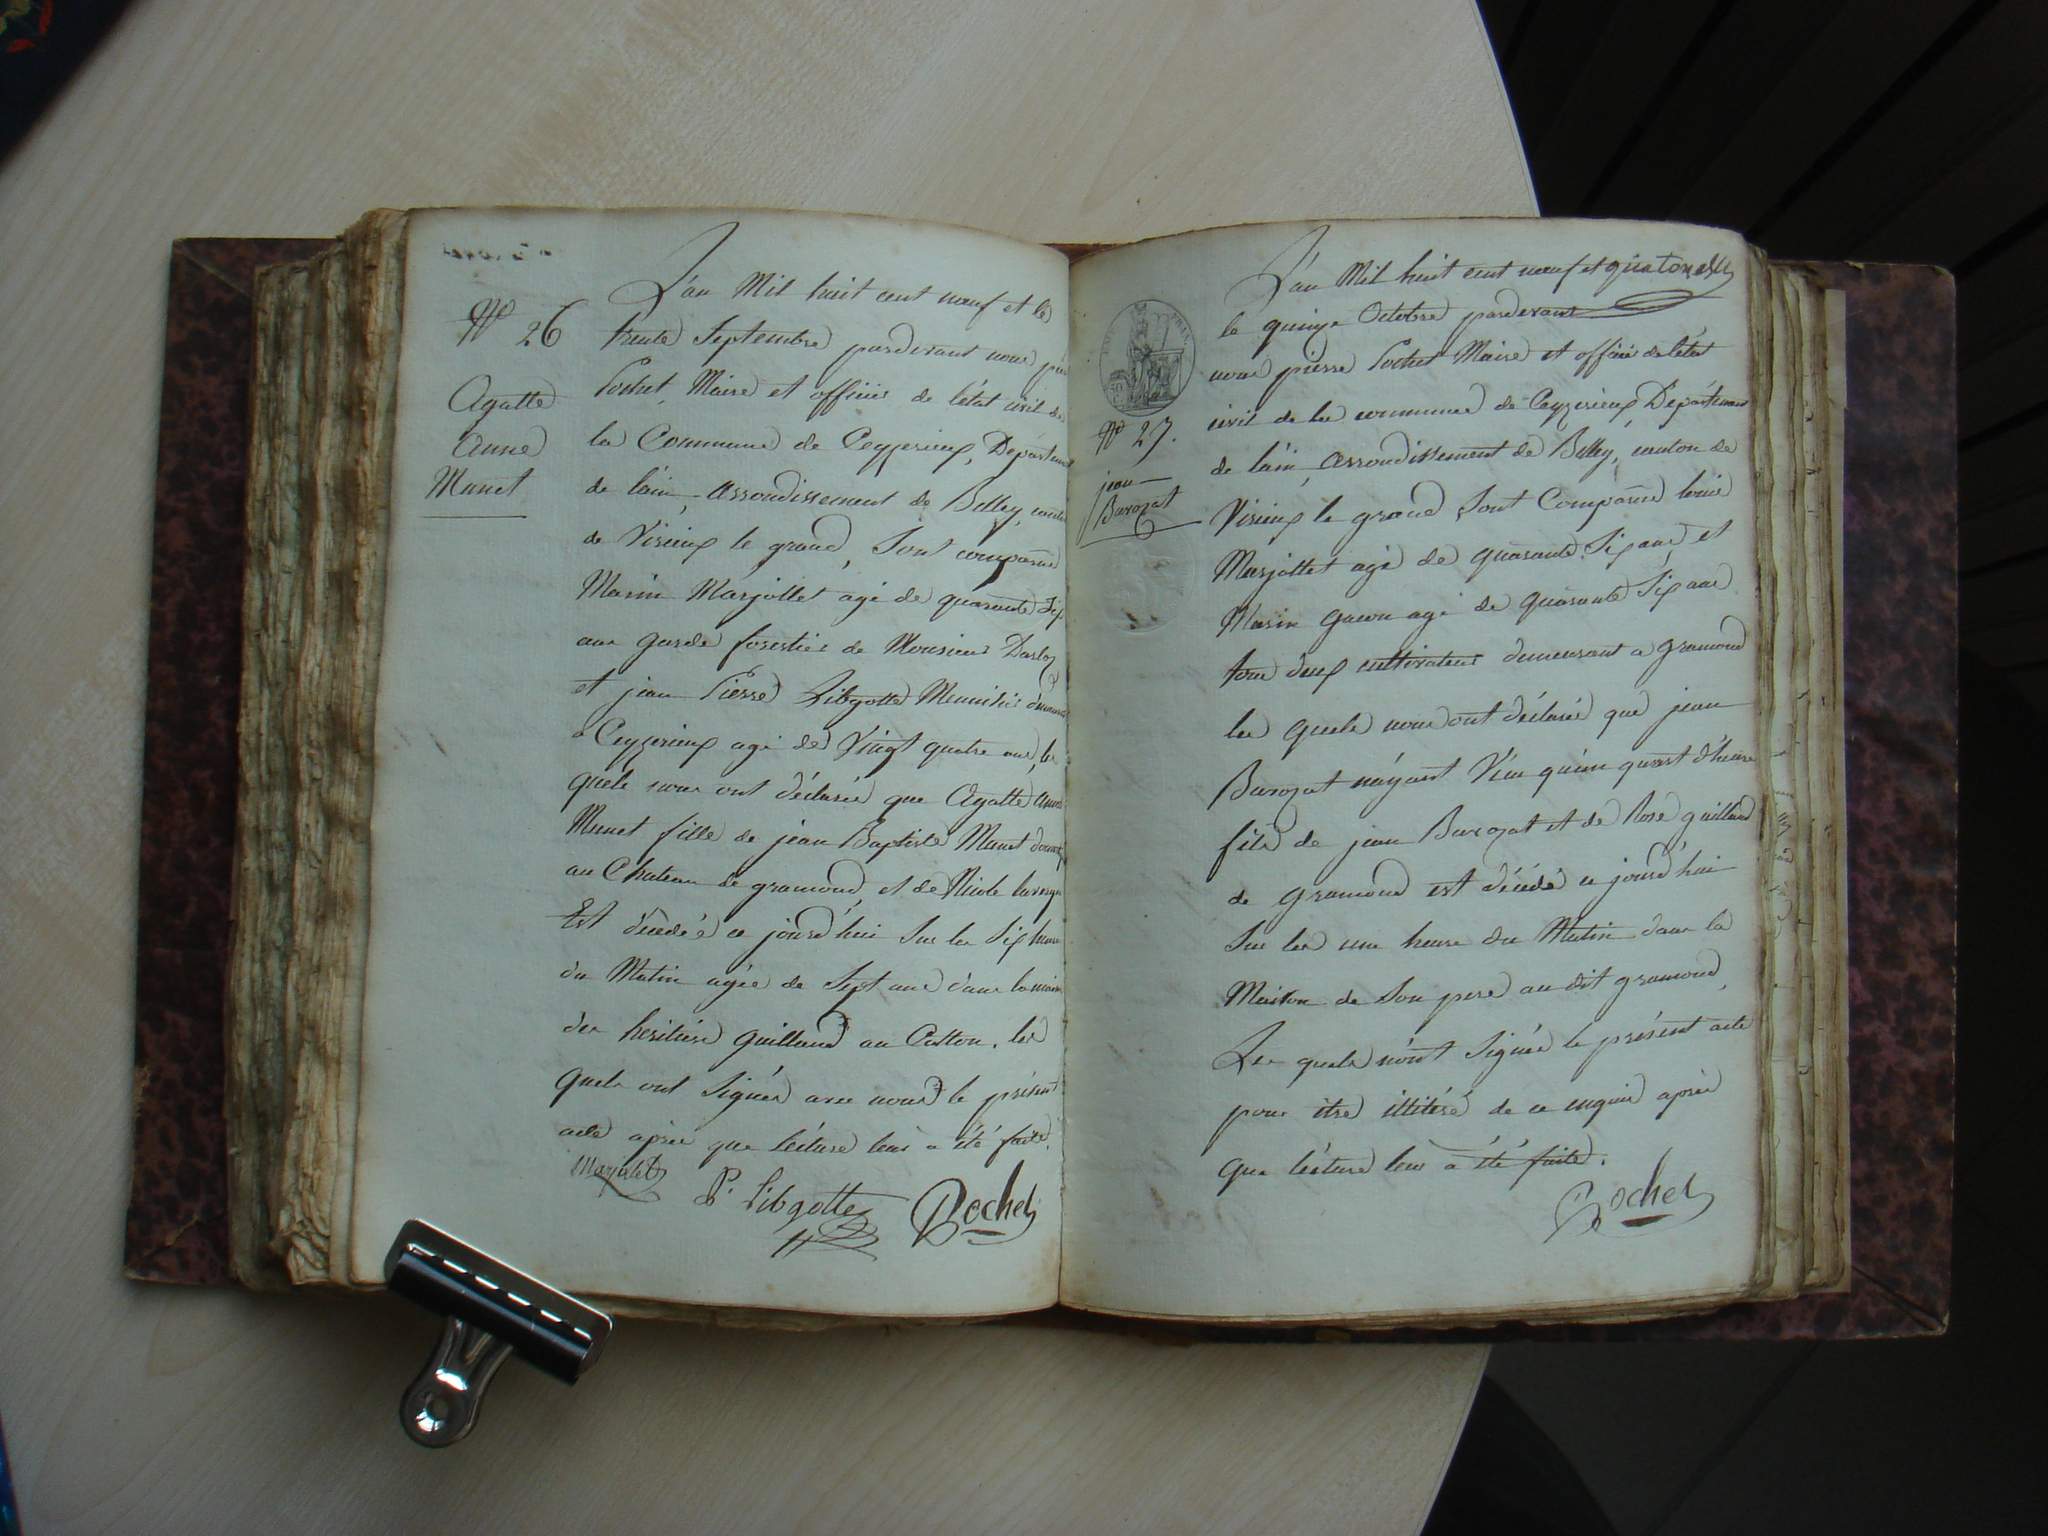 N° 26
Agatte
Anne
Munet
L'an Mil huit cent neuf et le
trente Septembre pardevant nous
Pochet, Maire et officier de l'état civil de
la Commune de Ceyzerieux, Département
de l'ain, arrondissement de Belley, canton
de Virieux le grand, Sont comparus
Marin Marjollet agé de quarante Six
ans garde forestier de Monsieur
et jean Pierre Libgotte Meunier
a Ceyzerieux agé de Vingt quatre ans, les
quels nous ont déclarés que Agatte Anne
Munet fille de jean Baptiste Munet
au Chateau de gramond, et de Nicole
Est décédée ce jourd'hui Sur les Six heures
du Matin agée de Sept ans dans la maison
des heritiers guilland au les
quels ont Signés avec nous le présent
acte après que lécture leur a été faite.
Marjolet
P. Libgotte
Pochet
L'an Mil huit cent neuf et
le quinze Octobre pardevant
nous pierre Pochet Maire et officier de l'état
civil de la commune de Ceyzerieux, Département
de l'ain, arrondissement de Belley, canton de
N° 27.
jean
Burozat
Virieux le grand, Sont Comparus louis
Marjollet agé de quarante Six ans, et
Marin gucon agé de quarante Six ans
tous deux cultivateurs demeurant a gramond
les quels nous ont déclarés que jean
Burozat n'áyant Vécu qu'un quart d'heure
fils de jean Burozat et de Rose guilland
de gramond est décédé ce jourd'hui
Sur les une heure du Matin dans la
Maison de Son pere au dit gramond,
Les quels n'ont Signés le présent acte
pour être illitéré de ce enquis après
que lécture leur a été faite.
Pochet